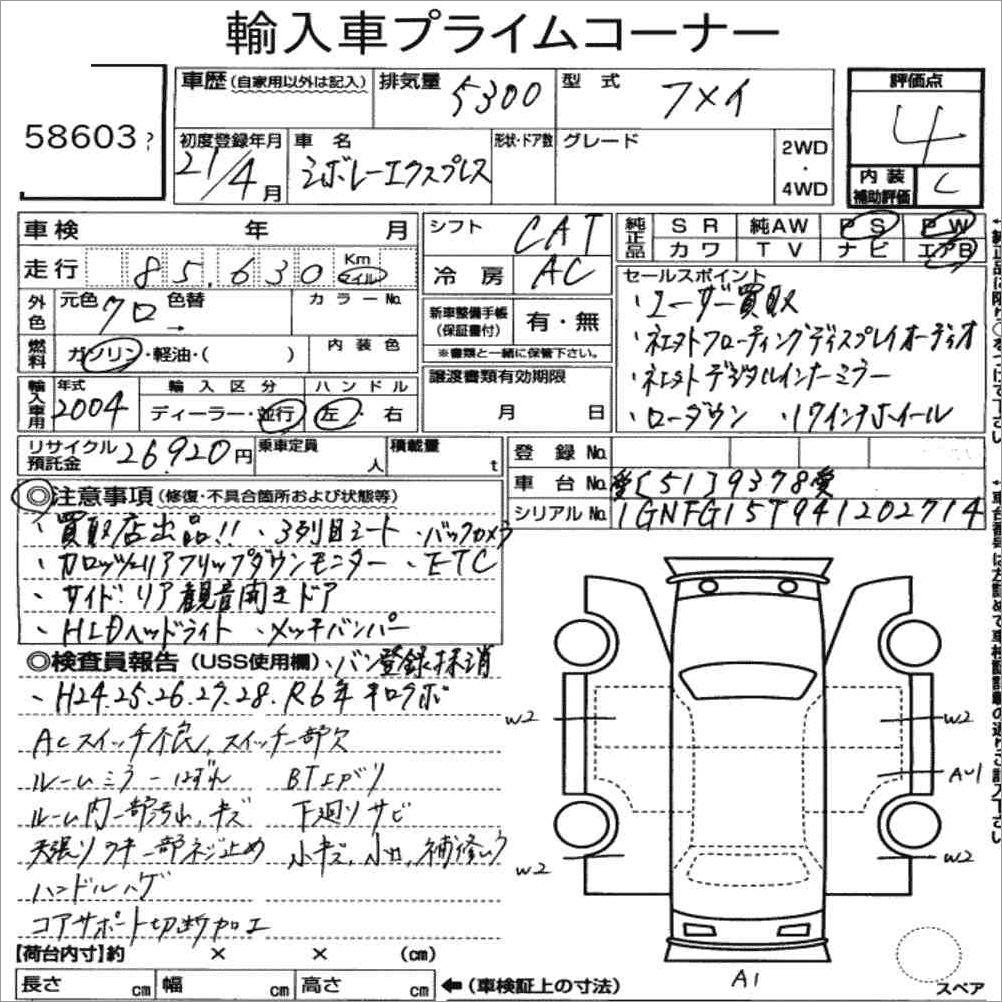 輸入車プライムコーナー
58603
車歴(自家用以外は記入)
排気量 5300
型式 フメイ
評価点 4
初度登録年月 21/4月
車名 シボレーエクスプレス
形状・ドア数
グレード
2WD・4WD
内装補助評価 C
車検 年 月
シフト CAT
純正品 SR 純AW PS PW
カワ TV ナビ エアB
走行 85,630 Km マイル
冷房 AC
セールスポイント
・ユーザー買取
外色 元色 クロ 色替 → カラーNo.
新車整備手帳(保証書付) 有・無
・社外フローティングディスプレイオーディオ
燃料 ガソリン・軽油・( ) 内装色
※書類と一緒に保管下さい。
・社外デジタルインナーミラー
輸入車用 年式 2004 輸入区分 ディーラー・並行 ハンドル 左・右
譲渡書類有効期限 月 日
・ローダウン ・17インチホイール
リサイクル預託金 26,920円 乗車定員 人 積載量 t
登録No.
車台No. 愛[51]9378愛
シリアルNo. 1GNFG15T941202714
◎注意事項(修復・不具合箇所および状態等)
・買取店出品!! ・3列目シート ・バックカメラ
・カロッツェリアフリップダウンモニター ・ETC
・サイド・リア観音開きドア
・HIDヘッドライト ・メッキバンパー
◎検査員報告(USS使用欄) ・バン登録抹消
・H24.25.26.27.28.R6年キロクボ
ACスイッチ不良、スイッチ一部欠
ルームミラーはずれ BTエバリ
ルーム内一部汚れ、キズ 下廻りサビ
天張リワキ一部ネジ止め 小キズ、小凹、補修ムラ
ハンドルハゲ
コアサポート切断加工
W2 W2
AU1
W2 W2
A1
スペア
【荷台内寸】約 × × (cm)
長さ cm 幅 cm 高さ cm ←(車検証上の寸法)